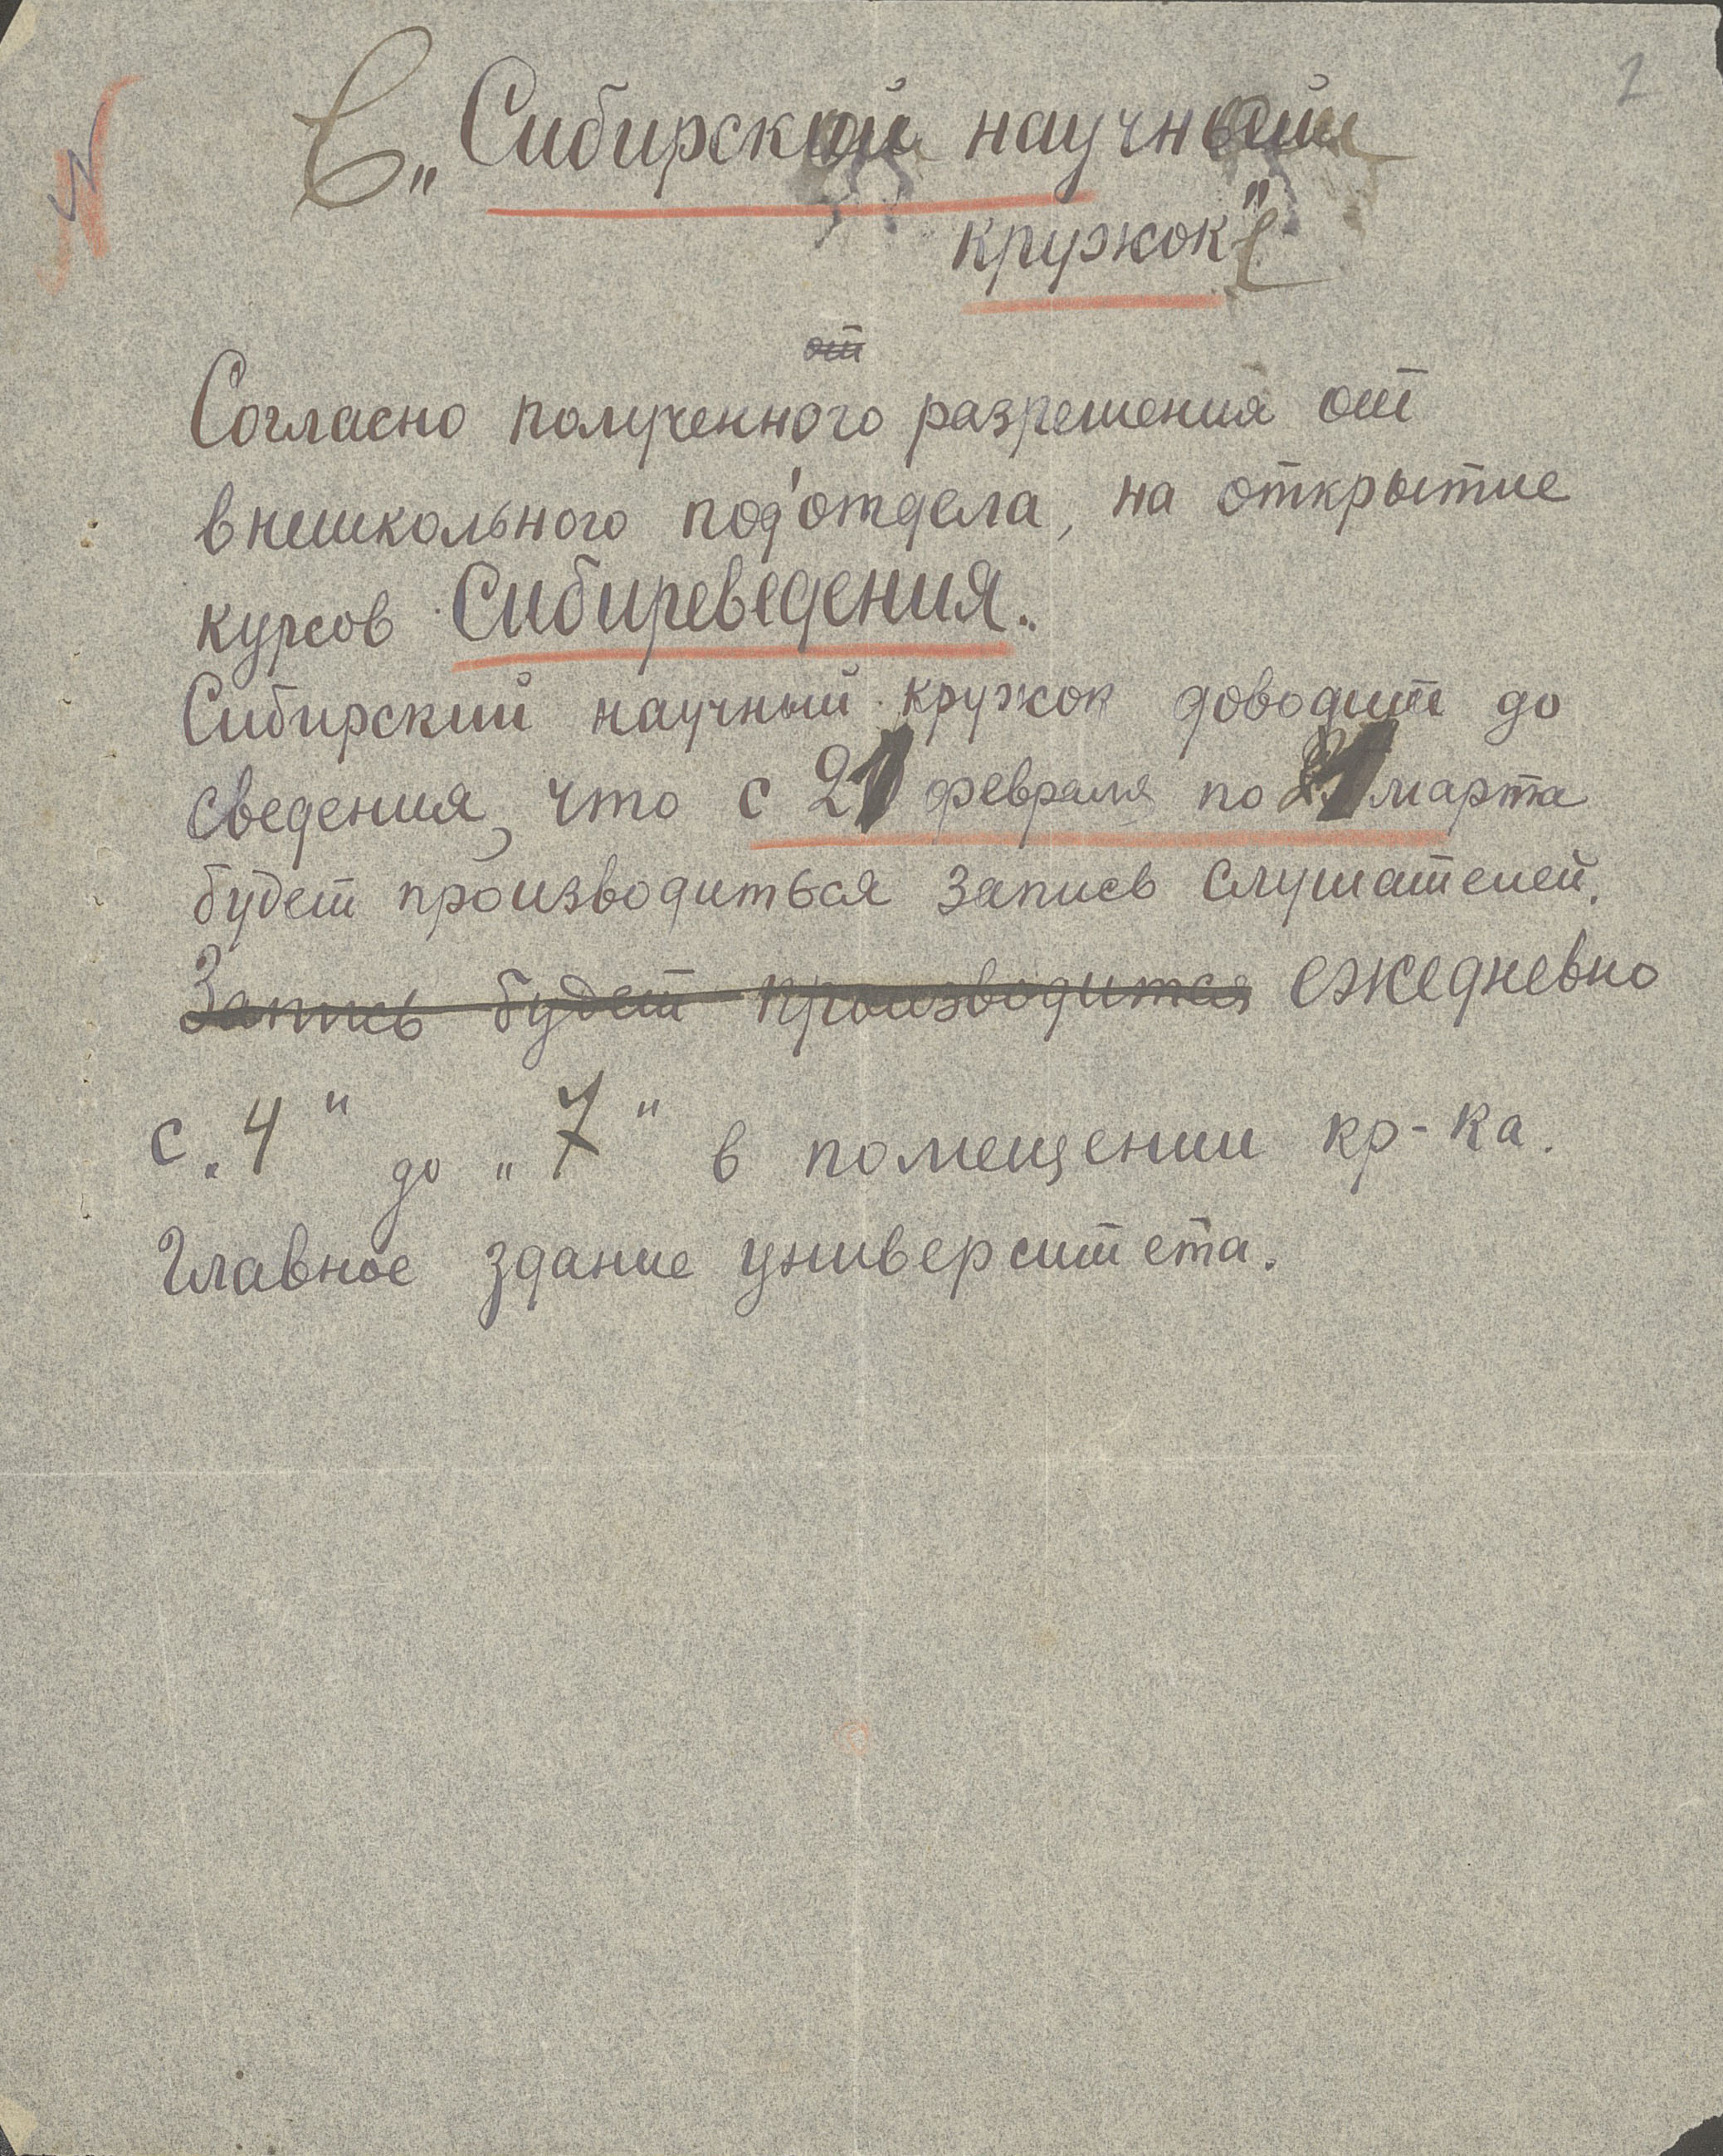 1
В „Сибирском научном
кружке"
от
Согласно полученного разрешения от
внешкольного под'отдела, на открытие
курсов Сибиреведения.
Сибирский научный кружок доводит до
сведения, что с 21 февраля по 1 марта
будет производиться запись слушателей.
Запись будет производится ежедневно
с „4" до „7" в помещении кр-ка.
Главное здание университета.